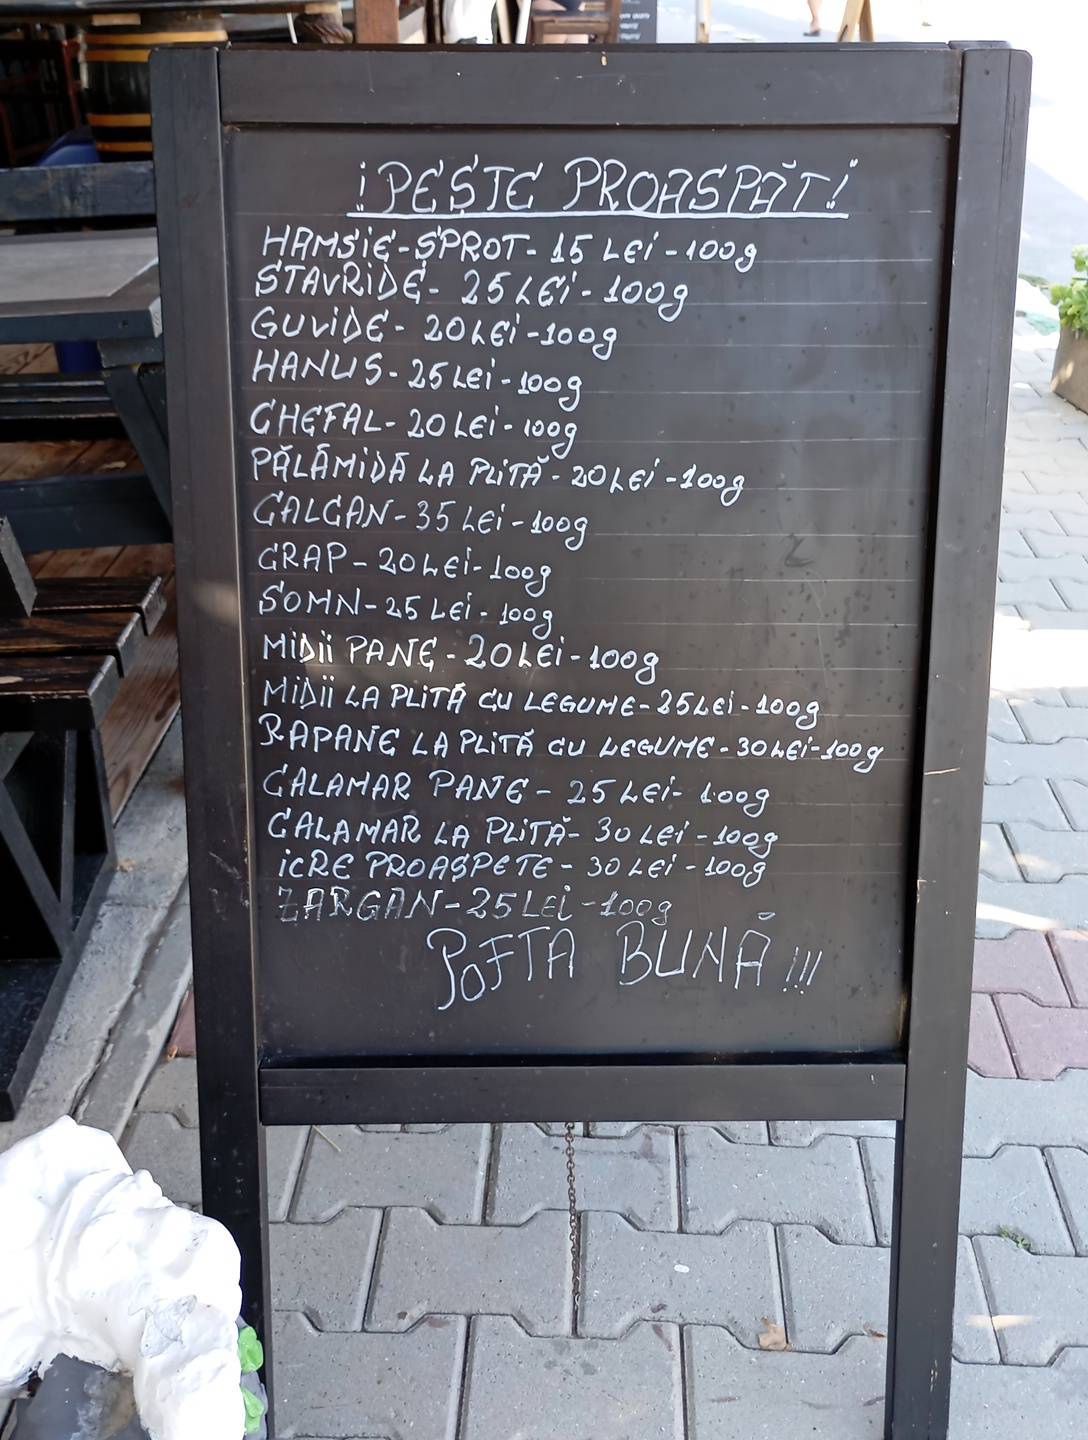 ¡PEȘTE PROASPĂT!
HAMSiE-ȘPROT-15 LEi-100g
STAVRiDE-25 LEi-100g
GUViDE-20 LEi-100g
HANUS-25 LEi-100g
CHEFAL-20 LEi-100g
PĂLĂMiDĂ LA PLiTĂ-20 LEi-100g
CALCAN-35 LEi-100g
CRAP-20 LEi-100g
SOMN-25 LEi-100g
MiDii PANE-20 LEi-100g
MiDii LA PLiTĂ CU LEGUME-25 LEi-100g
RAPANE LA PLiTĂ CU LEGUME-30 LEi-100g
CALAMAR PANE-25 LEi-100g
CALAMAR LA PLiTĂ-30 LEi-100g
iCRE PROASPETE-30 LEi-100g
ZARGAN-25 LEi-100g
POFTA BUNĂ!!!